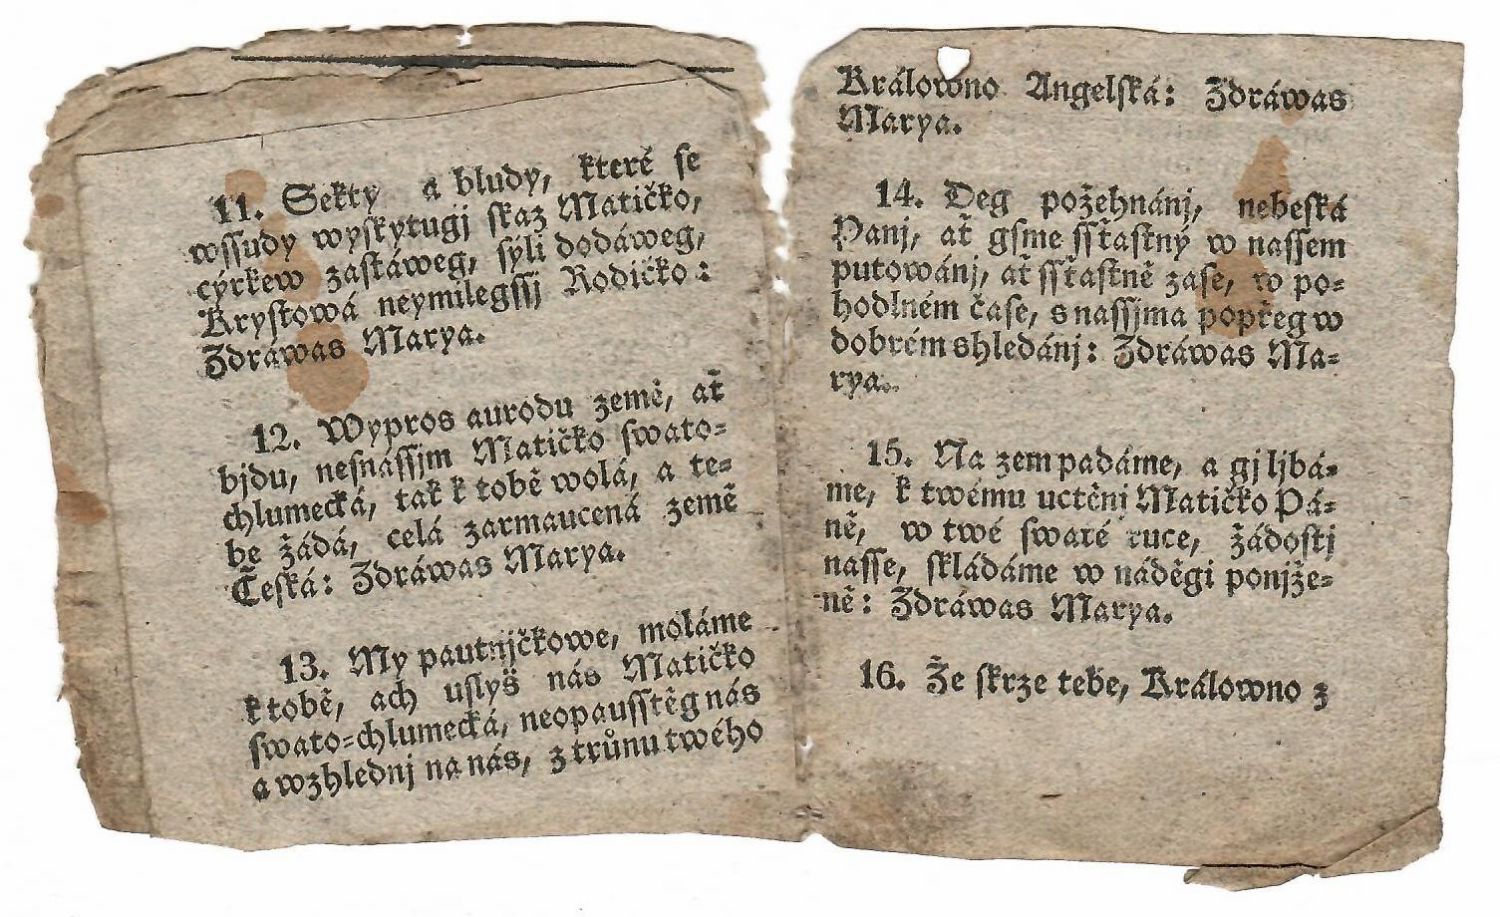 11. Sekty a bludy, které se
wſſudy wyſkytugj ſkaz Matičko,
cýrkew zaſtáweg, ſýli dodáweg,
Kryſtowá neymilegſſj Rodičko:
Zdráwas Marya.
12. Wypros aurodu země, ať
bjdu, neſnáſſjm Matičko ſwato=
chlumecká, tak k tobě wolá, a te=
be žádá, celá zarmaucená země
Česká: Zdráwas Marya.
13. My pautnjčkowe, moláme
k tobě, ach uſlyš nás Matičko
ſwato=chlumecká, neopauſſtěg nás
a wzhlednj na nás, z trůnu twého
Králowno Angelſká: Zdráwas
Marya.
14. Deg požehnánj, nebeſká
Panj, ať gſme ſſťaſtný w naſſem
putowánj, ať ſſťaſtně zaſe, w po=
hodlném čaſe, s naſſjma popřeg w
dobrém shledánj: Zdráwas Ma=
rya.
15. Na zem padáme, a gj ljbá=
me, k twému uctěni Matičko Pá=
ně, w twé ſwaré ruce, žádoſtj
naſſe, ſkládáme w náděgi ponjže=
ně: Zdráwas Marya.
16. Že ſkrze tebe, Králowno z